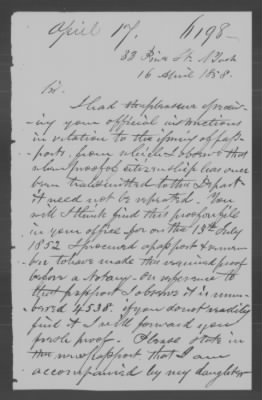 April 17. 6198-
33 Pine St. N York
16 April 1858.
Sir.
I had the pleasure of receiv-
ing your official instructions
in relation to the issuing of pass-
ports, from which I observe that
when proof of citizenship has once
been transmitted to the Depart-
it need not be repeated. You
will I think find this proof on file
in your office for on the 15th July
1852 I procured a passport & remem-
ber to have made the required proof
before a Notary - On reference to
that passport I observe it is num-
bered 4538. if you do not readily
find it I will forward you
fresh proof. Please state in
the new passport that I am
accompanied by my daughter